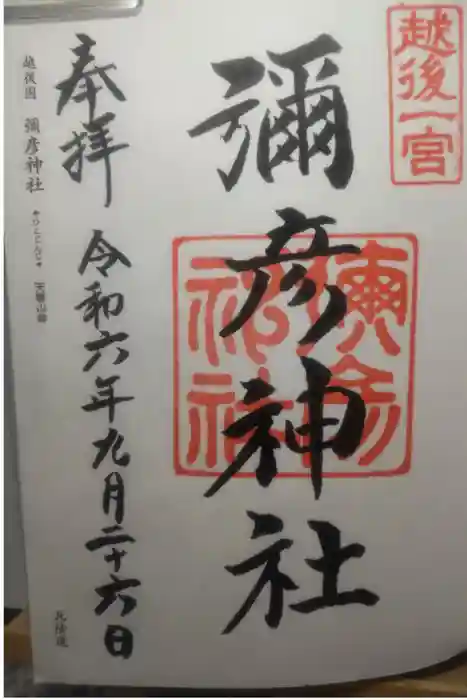 越後一宮
彌彦神社
彌彦神社
奉拝
令和六年九月二十六日
越後国 彌彦神社
北陸道